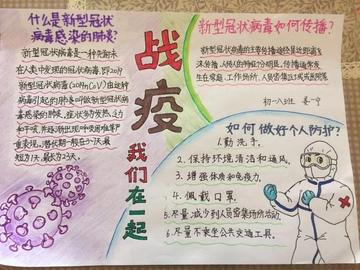 什么是新型冠状
病毒感染的肺炎?
新型冠状病毒是一种先前未
在人类中发现的冠状病毒,即2019
新型冠状病毒(2019nCoV)由这种
病毒引起的肺炎叫做新型冠状病
毒感染的肺炎。症状多为发热,乏力
和干咳,并逐渐出现呼吸困难等严
重表现。潜伏期一般在3-7天,最
短为1天,最长为23天。
战疫
我们在一起
新型冠状病毒如何传播?
新型冠状病毒的主要传播途径是近距离飞
沫传播,
传播通常发
生在家庭、工作场所、人员密集过
初一八3班
如何做好个人防护?
1.勤洗手。
2.保持环境清洁和通风。
3.增强体质和免疫力。
4.佩戴口罩。
5.尽量减少到人员密集场所活动。
6.尽量不乘坐公共交通工具。